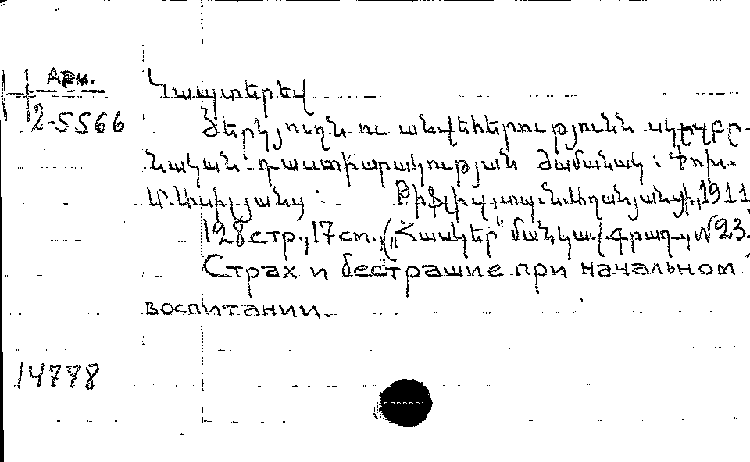 Арм.
2-5566
Կապտերեվ
Երկյուղն ու անվեհերությունն սկզբը-
նական դաստիարակության ժամանակ: Փոխ.
Թիֆլիս, 1911
128 стр., 17 см., ("Հասկեր" մանկա. գրադ., №23.
Страх и бесстрашие при начальном
воспитании.
14778